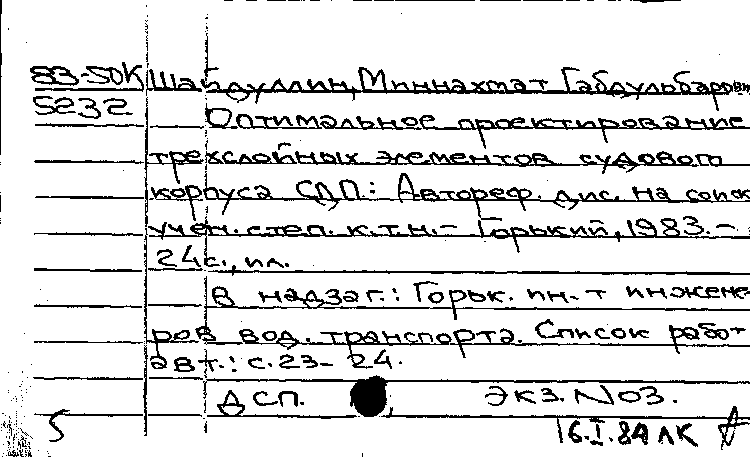 83-50К Шайдуллин, Миннахмат Габдульбарови
5232 Оптимальное проектирование
трехслойных элементов судового
корпуса СДП: Автореф. дис. на соиск
учен. степ. к.т.н. - Горький, 1983. -
24с., ил.
В надзаг.: Горьк. ин-т инжене
ров вод. транспорта. Список работ
авт.: с. 23-24.
ДСП. Экз. №03.
5 16.I.84 ЛК